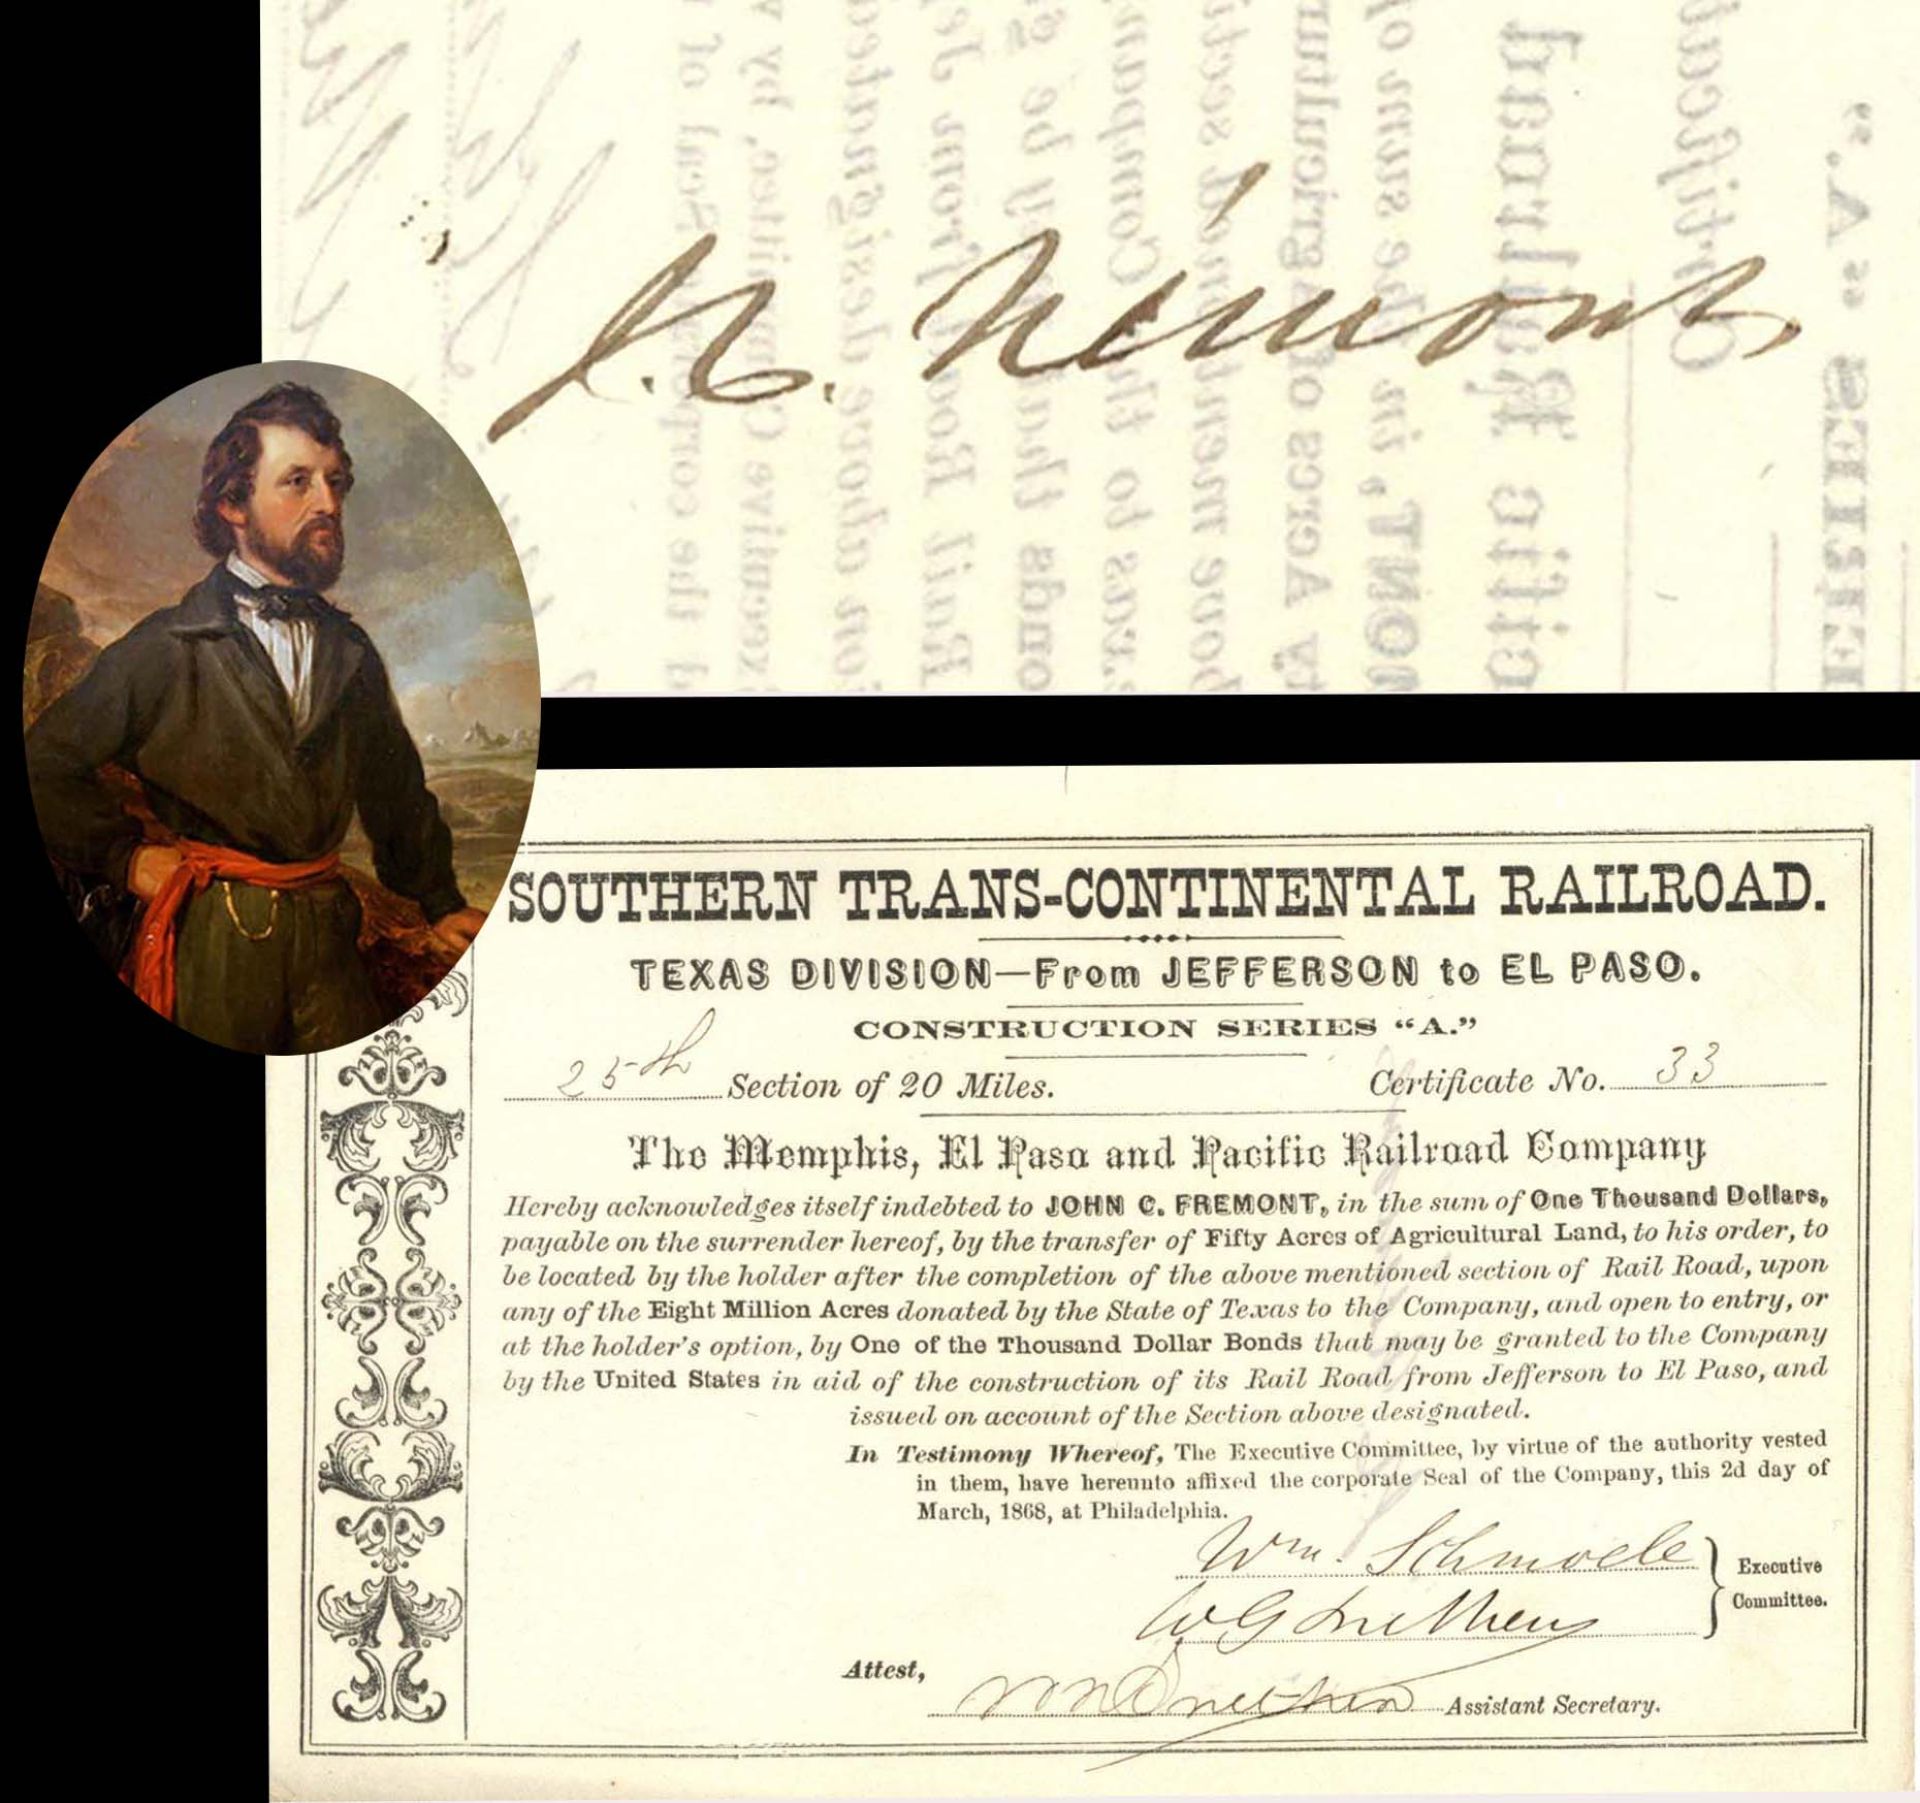 J. C. Frémont,
SOUTHERN TRANS-CONTINENTAL RAILROAD.
TEXAS DIVISION—From JEFFERSON to EL PASO.
CONSTRUCTION SERIES “A.”
25th Section of 20 Miles. Certificate No. 33
The Memphis, El Paso and Pacific Railroad Company
Hereby acknowledges itself indebted to JOHN C. FREMONT, in the sum of One Thousand Dollars,
payable on the surrender hereof, by the transfer of Fifty Acres of Agricultural Land, to his order, to
be located by the holder after the completion of the above mentioned section of Rail Road, upon
any of the Eight Million Acres donated by the State of Texas to the Company, and open to entry, or
at the holder's option, by One of the Thousand Dollar Bonds that may be granted to the Company
by the United States in aid of the construction of its Rail Road from Jefferson to El Paso, and
issued on account of the Section above designated.
In Testimony Whereof, The Executive Committee, by virtue of the authority vested
in them, have hereunto affixed the corporate Seal of the Company, this 2d day of
March, 1868, at Philadelphia.
Wm. Schmoele
Executive
Committee.
Attest,
Assistant Secretary.